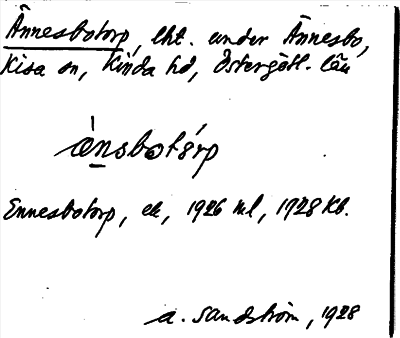 Ännesbotorp, lht. under Ännesbo,
Kisa sn, Kinda hd, Östergötl. län
ànsbotórp
Ennesbotorp, ek, 1926 ml, 1928 Kb.
A. Sandström, 1928